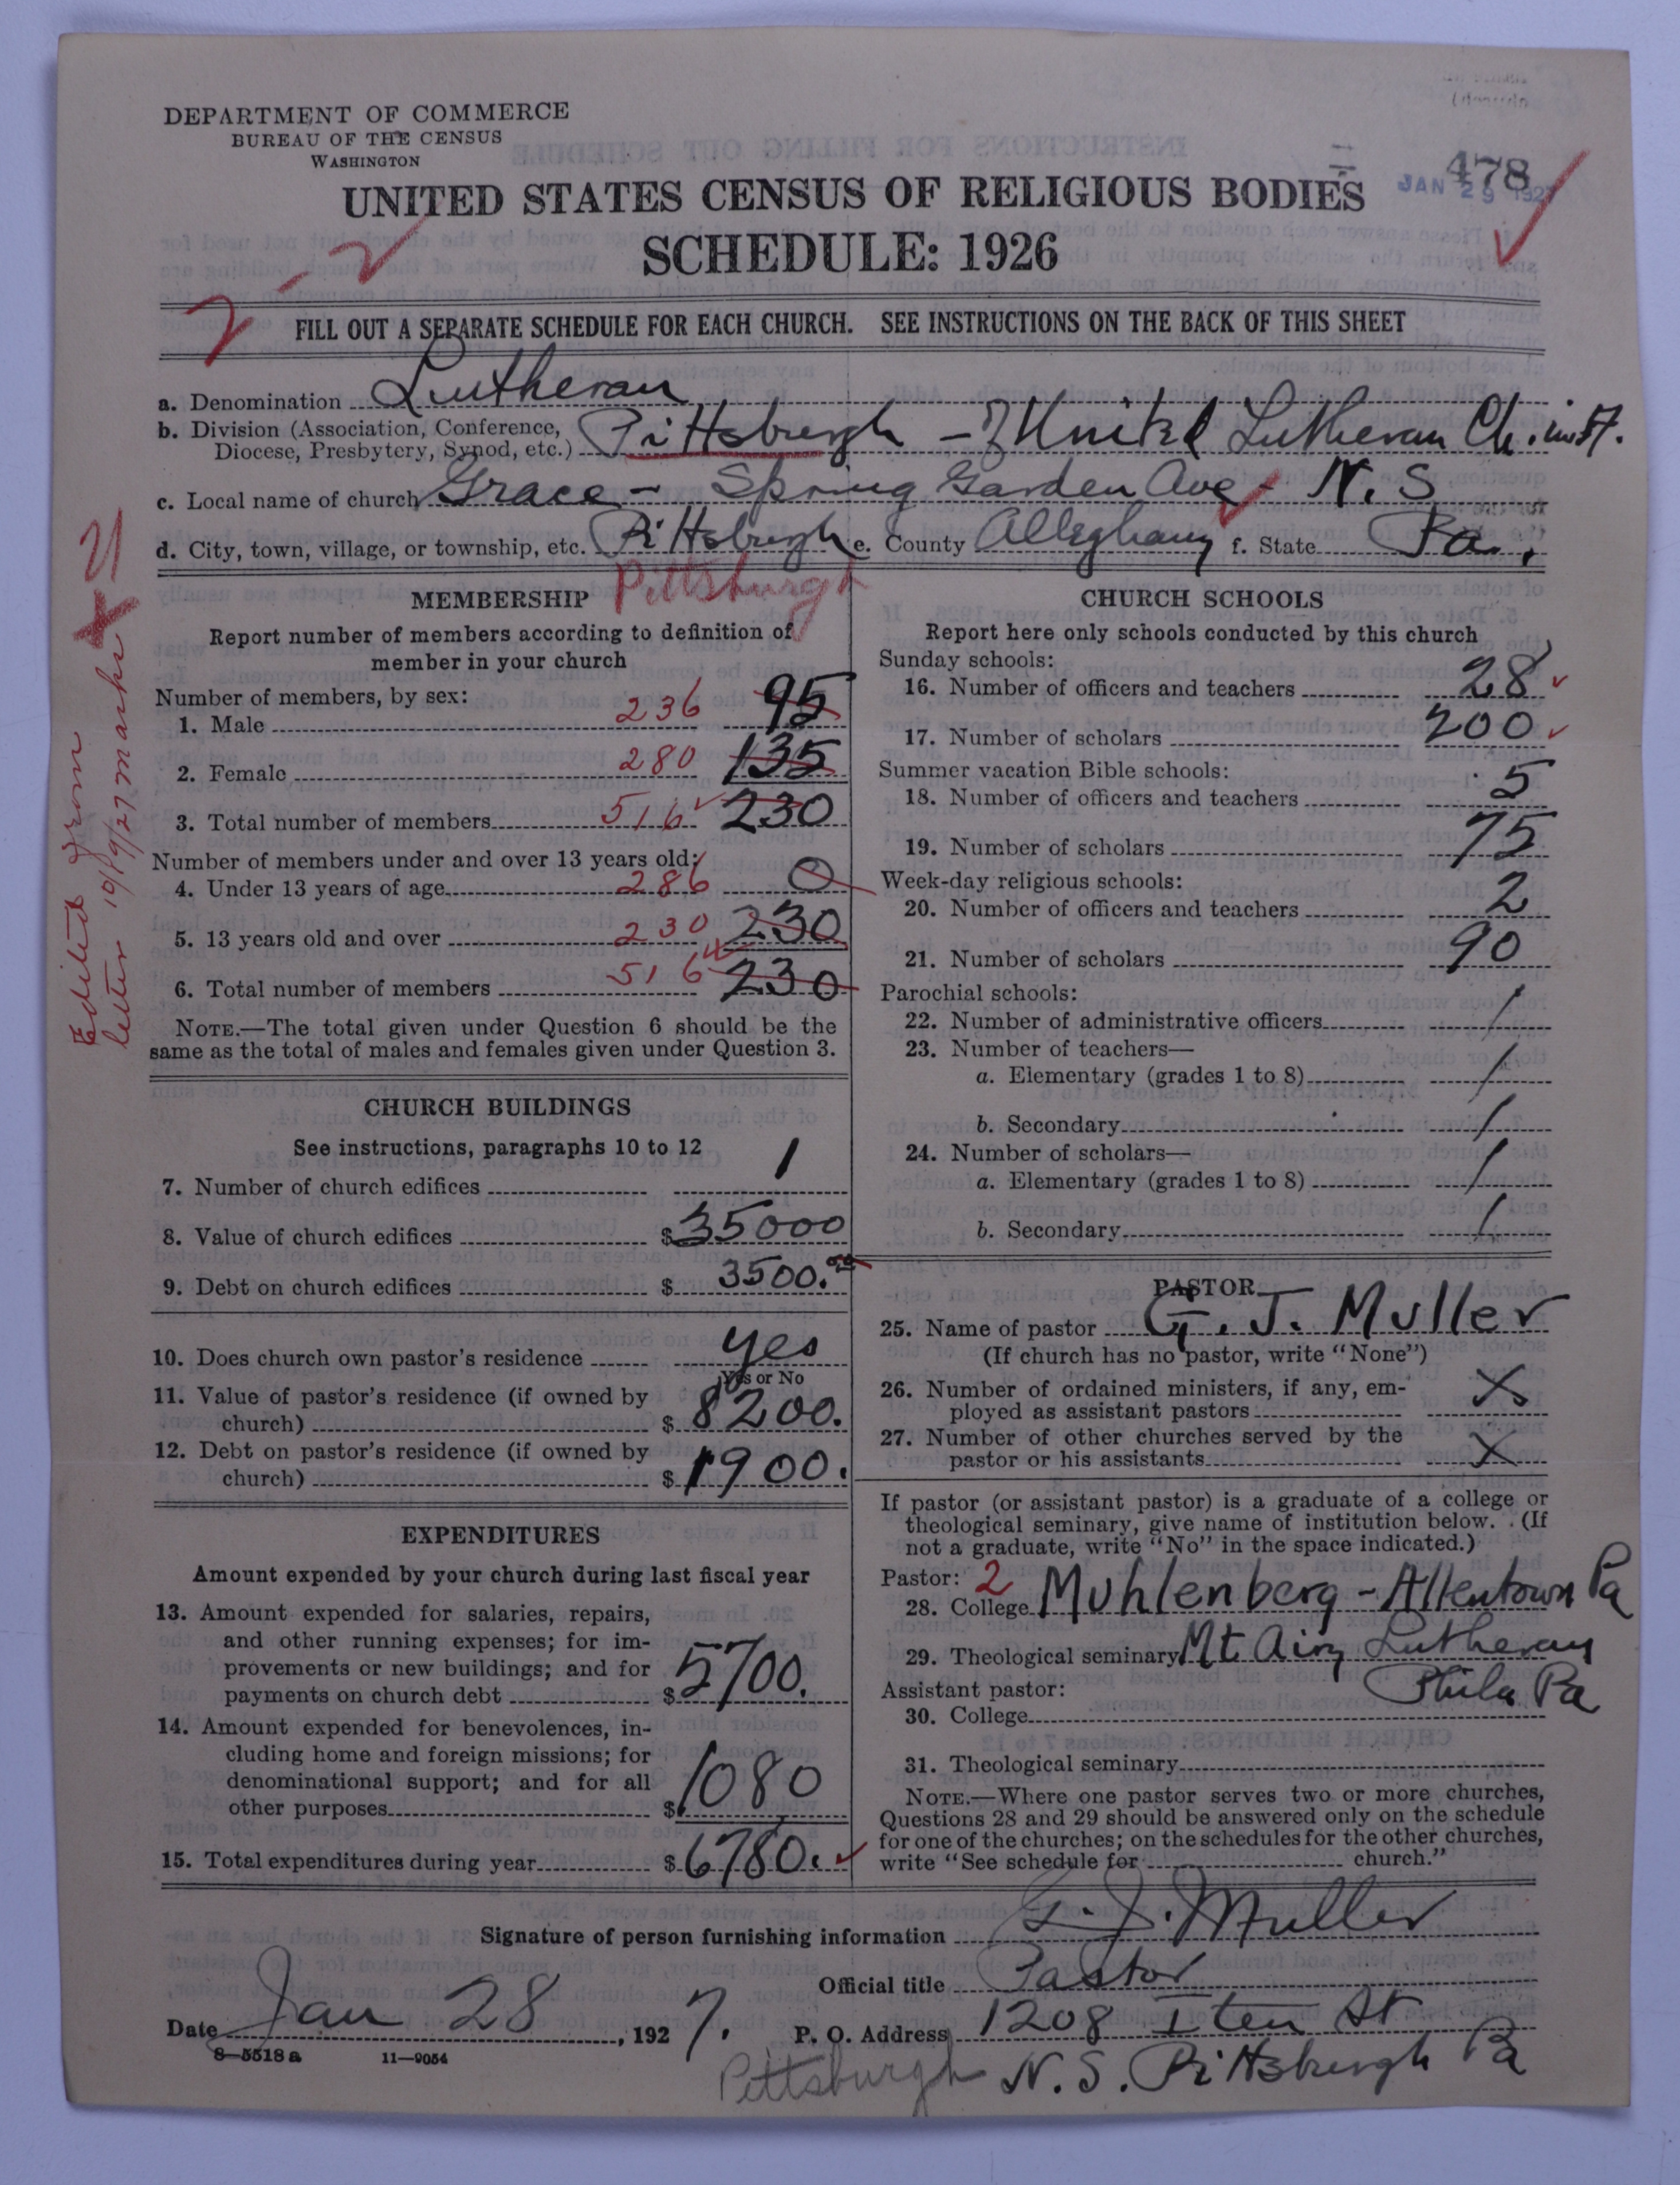 DEPARTMENT OF COMMERCE
BUREAU OF THE CENSUS
WASHINGTON
478
JAN 29 1927
UNITED STATES CENSUS OF RELIGIOUS BODIES
SCHEDULE: 1926
2-2
FILL OUT A SEPARATE SCHEDULE FOR EACH CHURCH. SEE INSTRUCTIONS ON THE BACK OF THIS SHEET
a. Denomination Lutheran
b. Division (Association, Conference, Diocese, Presbytery, Synod, etc.) Pittsburgh - United Lutheran Ch.
c. Local name of church Grace - Spring Garden Ave - N. S
d. City, town, village, or township, etc. Pittsburgh e. County Alleghany f. State Pa.
Pittsburgh
Edited from
letter 10/9/27 Marks
MEMBERSHIP
Report number of members according to definition of
member in your church
Number of members, by sex:
1. Male 236 95
2. Female 280 135
3. Total number of members 516 230
Number of members under and over 13 years old:
4. Under 13 years of age 286 0
5. 13 years old and over 230 230
6. Total number of members 516 230
NOTE.—The total given under Question 6 should be the
same as the total of males and females given under Question 3.
CHURCH BUILDINGS
See instructions, paragraphs 10 to 12
7. Number of church edifices 1
8. Value of church edifices $35000
9. Debt on church edifices $3500.00
10. Does church own pastor's residence yes
Yes or No
11. Value of pastor's residence (if owned by
church) $8200.
12. Debt on pastor's residence (if owned by
church) $1900.
EXPENDITURES
Amount expended by your church during last fiscal year
13. Amount expended for salaries, repairs,
and other running expenses; for im-
provements or new buildings; and for
payments on church debt $5700.
14. Amount expended for benevolences, in-
cluding home and foreign missions; for
denominational support; and for all
other purposes $1080
15. Total expenditures during year $6780.
CHURCH SCHOOLS
Report here only schools conducted by this church
Sunday schools:
16. Number of officers and teachers 28
17. Number of scholars 200
Summer vacation Bible schools:
18. Number of officers and teachers 5
19. Number of scholars 75
Week-day religious schools:
20. Number of officers and teachers 2
21. Number of scholars 90
Parochial schools:
22. Number of administrative officers /
23. Number of teachers—
a. Elementary (grades 1 to 8) /
b. Secondary /
24. Number of scholars—
a. Elementary (grades 1 to 8) /
b. Secondary /
PASTOR
25. Name of pastor G. J. Muller
(If church has no pastor, write "None")
26. Number of ordained ministers, if any, em-
ployed as assistant pastors X
27. Number of other churches served by the
pastor or his assistants X
If pastor (or assistant pastor) is a graduate of a college or
theological seminary, give name of institution below. (If
not a graduate, write "No" in the space indicated.)
Pastor: 2
28. College Muhlenberg - Allentown Pa
29. Theological seminary Mt. Airy Lutheran
Phila Pa
Assistant pastor:
30. College
31. Theological seminary
NOTE.—Where one pastor serves two or more churches,
Questions 28 and 29 should be answered only on the schedule
for one of the churches; on the schedules for the other churches,
write "See schedule for church."
Signature of person furnishing information G. J. Muller
Official title Pastor
Date Jan 28, 1927. P. O. Address 1208 Iten St
8—5518a 11—9054
Pittsburgh N. S. Pittsburgh Pa